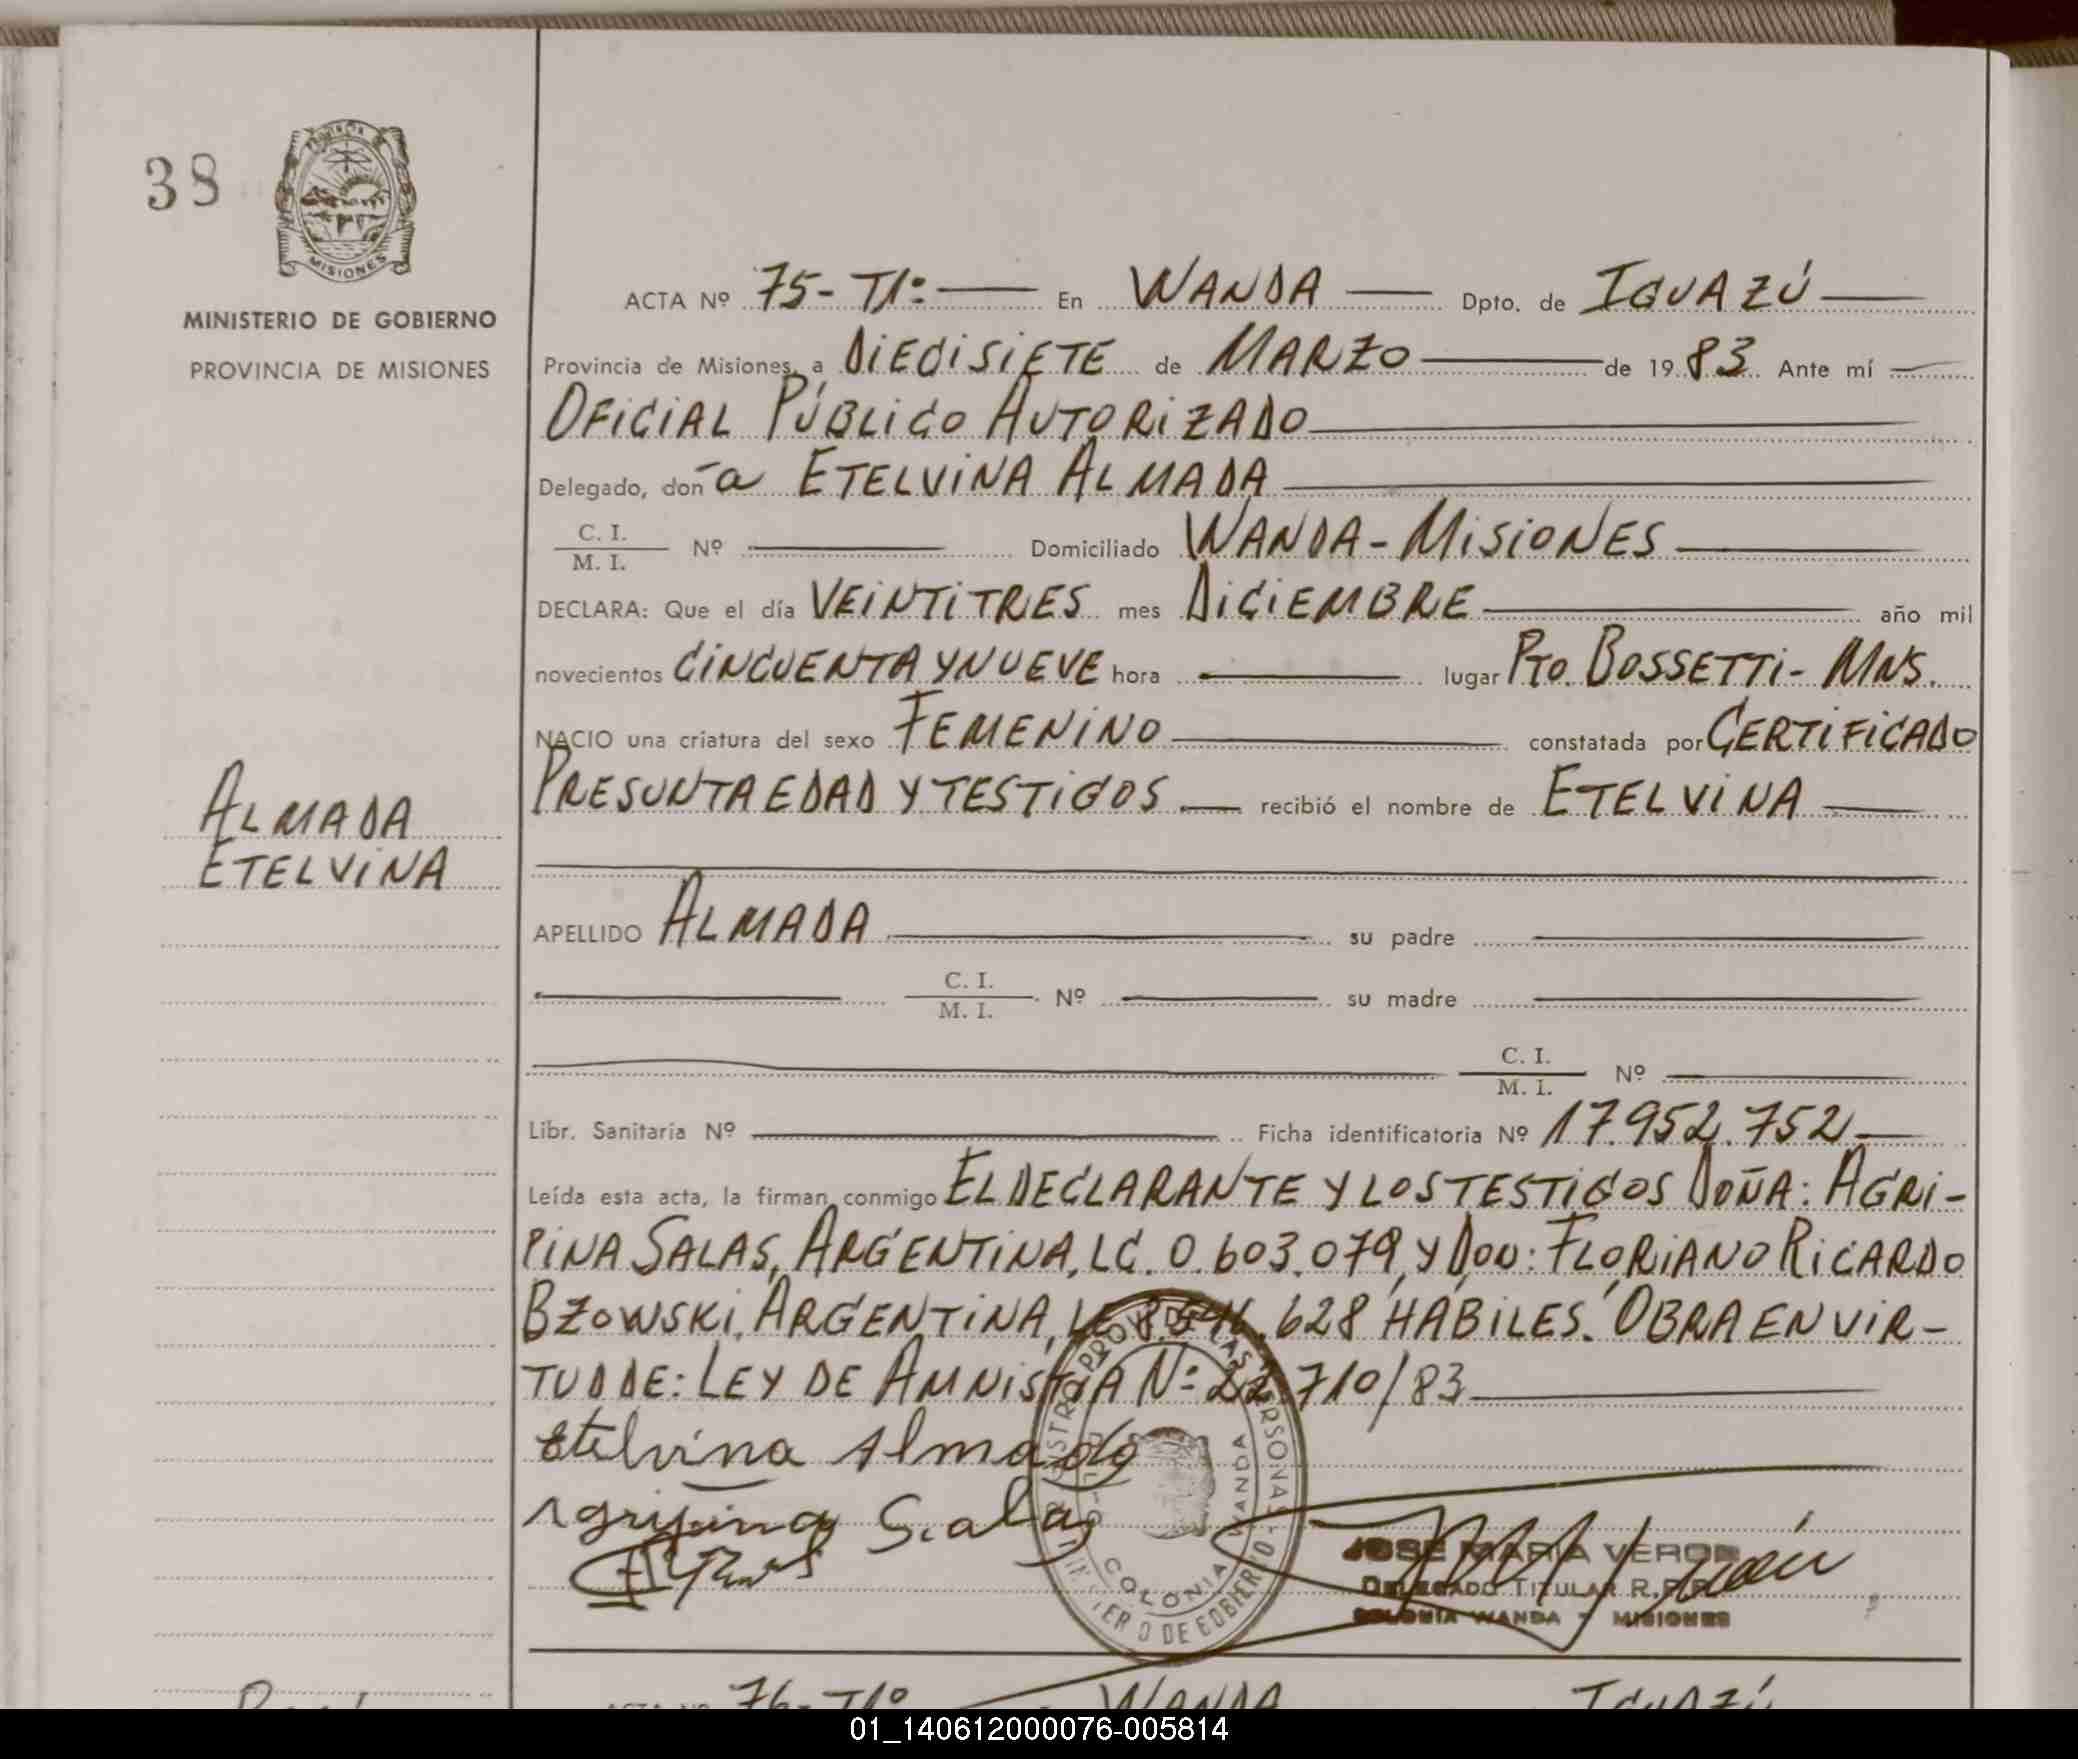 38
PROVINCIA DE
MISIONES
MINISTERIO DE GOBIERNO
PROVINCIA DE MISIONES
ALMADA
ETELVINA
ACTA Nº 75-Tº1º En WANDA Dpto. de IGUAZÚ
Provincia de Misiones, a DIECISIETE de MARZO de 1983 Ante mí
OFICIAL PÚBLICO AUTORIZADO
Delegado, doña ETELVINA ALMADA
C. I.
M. I. Nº Domiciliado WANDA-MISIONES
DECLARA: Que el día VEINTITRES mes DICIEMBRE año mil
novecientos CINCUENTA Y NUEVE hora lugar PTO. BOSSETTI-MNS.
NACIO una criatura del sexo FEMENINO constatada por CERTIFICADO
PRESUNTA EDAD Y TESTIGOS recibió el nombre de ETELVINA
APELLIDO ALMADA su padre
C. I.
M. I. Nº su madre
C. I.
M. I. Nº
Libr. Sanitaria Nº Ficha identificatoria Nº 17.952.752
Leída esta acta, la firman conmigo EL DECLARANTE Y LOS TESTIGOS DOÑA: AGRI-
PINA SALAS, ARGENTINA, LC. 0.603.079, Y DON: FLORIANO RICARDO
BZOWSKI, ARGENTINA, LE 8.546.628 HÁBILES. OBRA EN VIR-
TUD DE: LEY DE AMNISTIA Nº 22.710/83
Etelvina Almada
Agripina Salas
JOSE MARIA VERON
DELEGADO TITULAR R.P.P.
COLONIA WANDA - MISIONES
COLONIA WANDA
MINISTERIO DE GOBIERNO
ACTA Nº 76-Tº1º WANDA IGUAZÚ
01_140612000076-005814